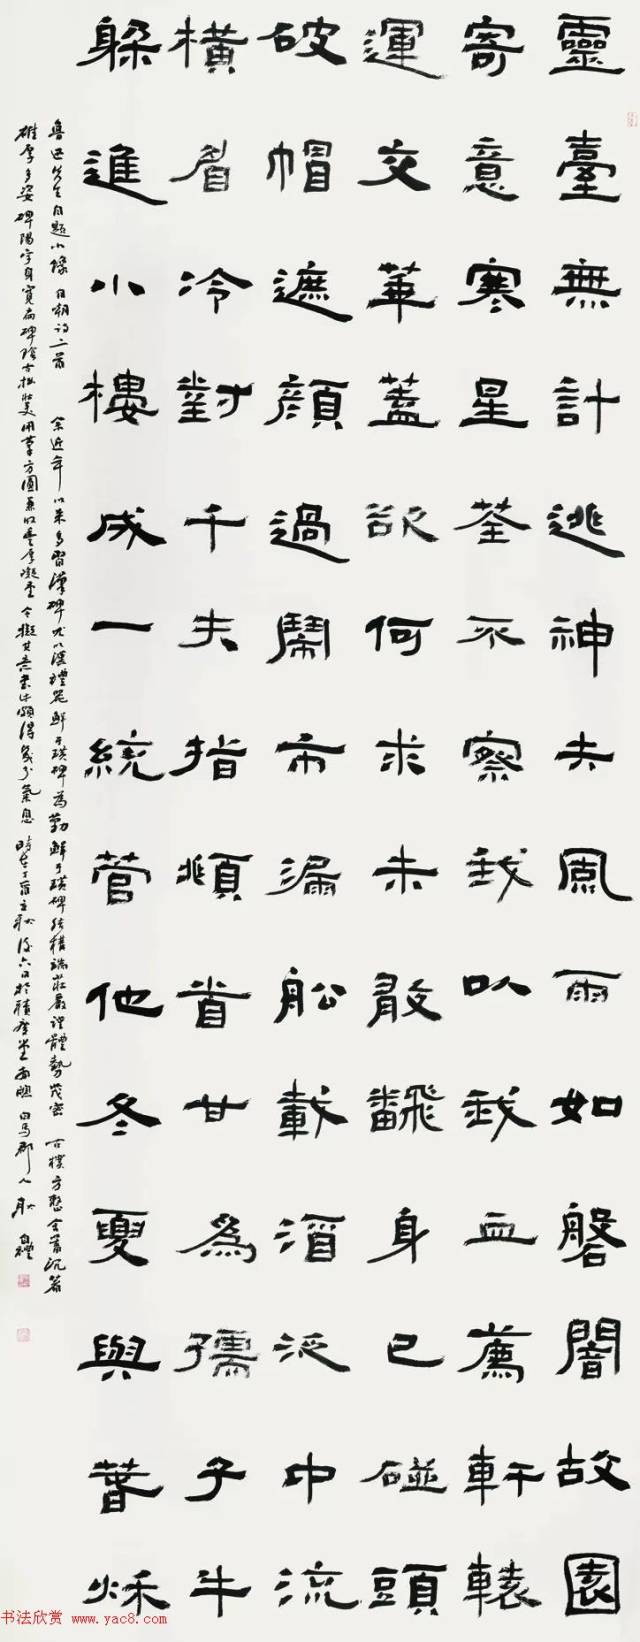 靈臺無計逃神矢風雨如磐闇故園
寄意寒星荃不察我以我血薦軒轅
運交華蓋欲何求未敢翻身已碰頭
破帽遮顏過鬧市漏船載酒泛中流
橫眉冷對千夫指俯首甘為孺子牛
躲進小樓成一統管他冬夏與春秋
魯迅先生自題小像 自嘲詩二首 余近年以來多習漢碑尤以漢禮器鮮于璜碑為勤鮮于璜碑結構端莊嚴謹體勢茂密 古樸方整含蓄沉著
雄厚多姿碑陽字身寬扁碑陰古拙壯美用筆方圓兼以厚凝重今擬其意書此頗得幾分氣息 時在丁酉立秋後六日於積慶堂南牖 白馬郡人耿自禮
书法欣赏 www.yac8.com